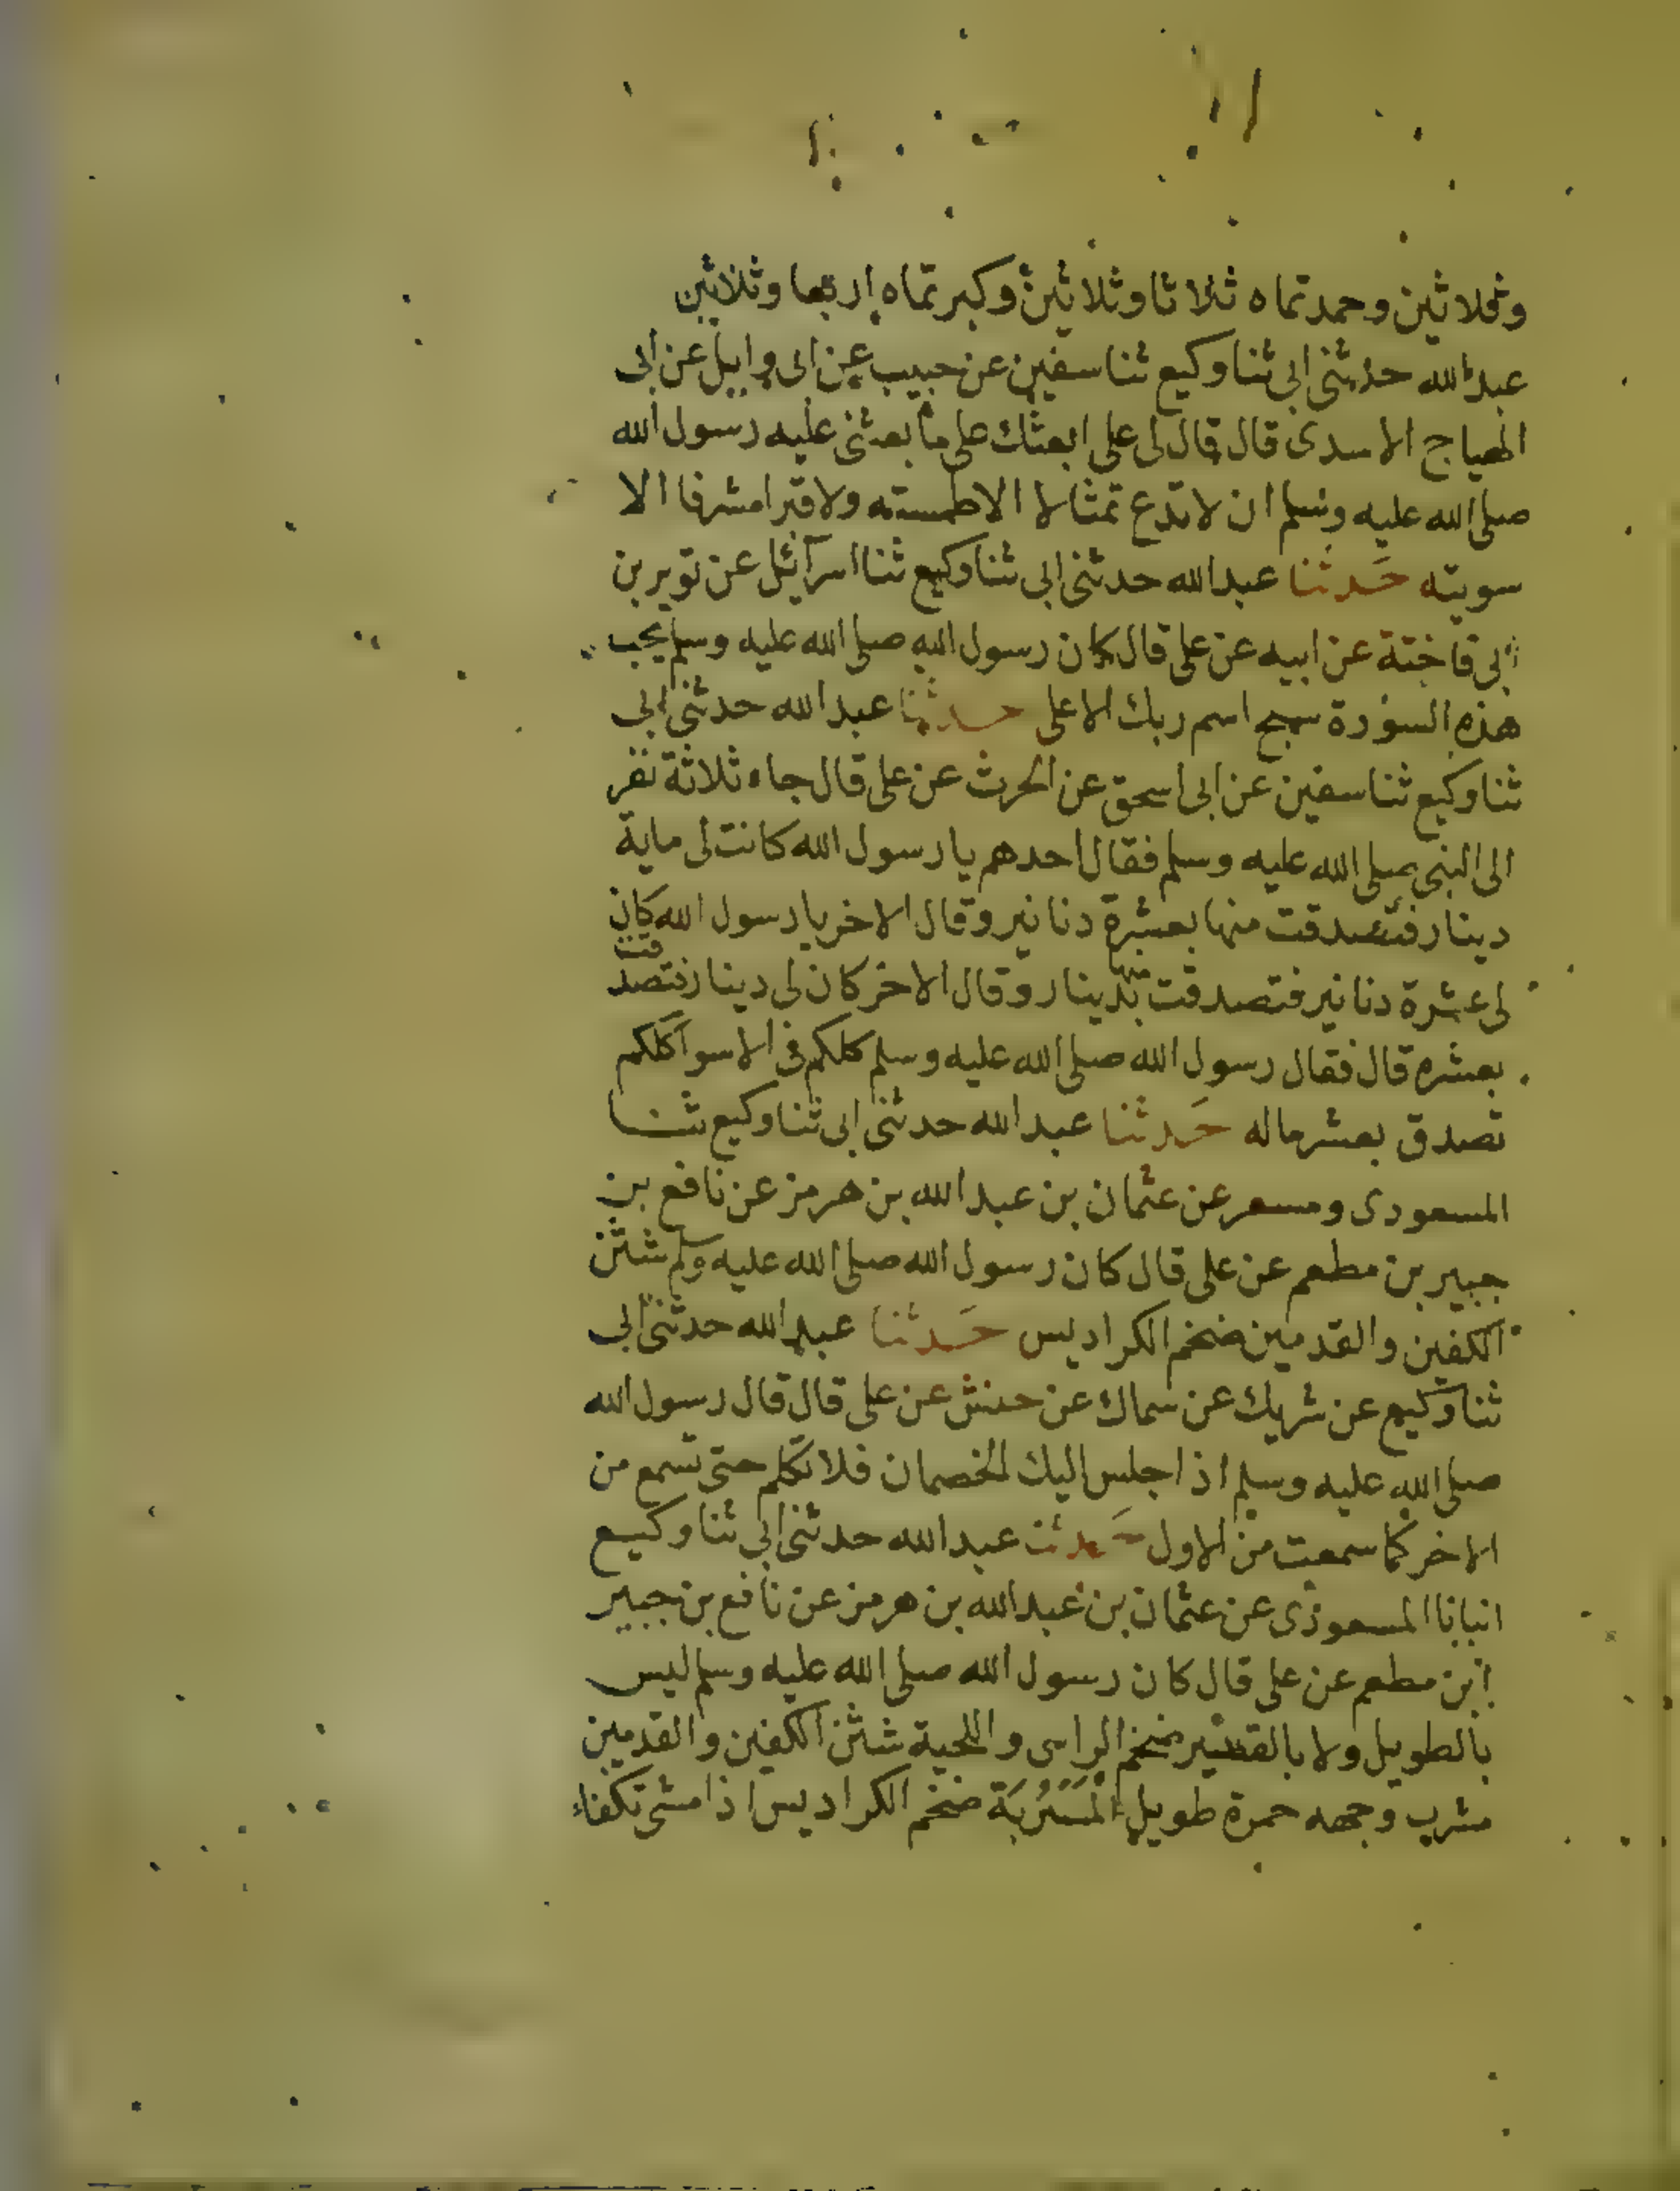 وثلاثين وحمدتماه ثلاثا وثلاثين وكبرتماه اربعا وثلاثين
عبد الله حدثني ابي ثنا وكيع ثنا سفين عن حبيب عن ابى وايل عن ابى
الهياج الاسدى قال قال لى على ابعثك على ما بعثنى عليه رسول الله
صلى الله عليه وسلم ان لا تدع تمثالا الا طمسته ولا قبرا مشرفا الا
سويته حدثنا عبد الله حدثنى ابى ثنا وكيع ثنا اسرآئيل عن ثوير بن
ابى فاختة عن ابيه عن على قال كان رسول الله صلى الله عليه وسلم يحب
هذه السورة سبح اسم ربك الاعلى حدثنا عبد الله حدثنى ابى
ثنا وكيع ثنا سفين عن ابى اسحق عن الحرث عن على قال جاء ثلاثة نفر
الى النبى صلى الله عليه وسلم فقال احدهم يا رسول الله كانت لى ماية
دينار فتصدقت منها بعشرة دنانير وقال الاخر يا رسول الله كان
لى عشرة دنانير فتصدقت منها بدينار وقال الاخر كان لى دينار فتصدقت
بعشره قال فقال رسول الله صلى الله عليه وسلم كلكم فى الاسوا كلكم
تصدق بعشر ماله حدثنا عبد الله حدثنى ابى ثنا وكيع ثنا
المسعودى ومسعر عن عثمان بن عبد الله بن هرمز عن نافع بن
جبير بن مطعم عن على قال كان رسول الله صلى الله عليه وسلم شثن
الكفين والقدمين ضخم الكراديس حدثنا عبد الله حدثنى ابى
ثنا وكيع عن شريك عن سماك عن حنش عن على قال قال رسول الله
صلى الله عليه وسلم اذا جلس اليك الخصمان فلا تكلم حتى تسمع من
الاخر كما سمعت من الاول حدثنا عبد الله حدثنى ابى ثنا وكيع
انبانا المسعودى عن عثمان بن عبد الله بن هرمز عن نافع بن جبير
ابن مطعم عن على قال كان رسول الله صلى الله عليه وسلم ليس
بالطويل ولا بالقصير ضخم الراس واللحية شثن الكفين والقدمين
مشرب وجهه حمرة طويل الْمَسْرُبَة ضخم الكراديس اذا مشى تكفاء